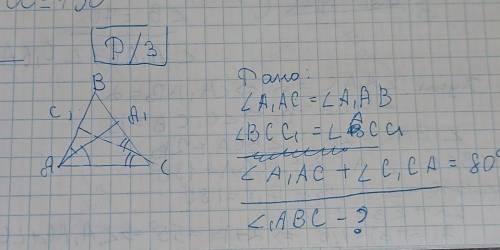 Р/З
B
C₁
A₁
A
C
Дано:
∠A₁AC = ∠A₁AB
∠BCC₁ = ∠ACC₁
∠A₁AC + ∠C₁CA = 80°
∠ABC - ?